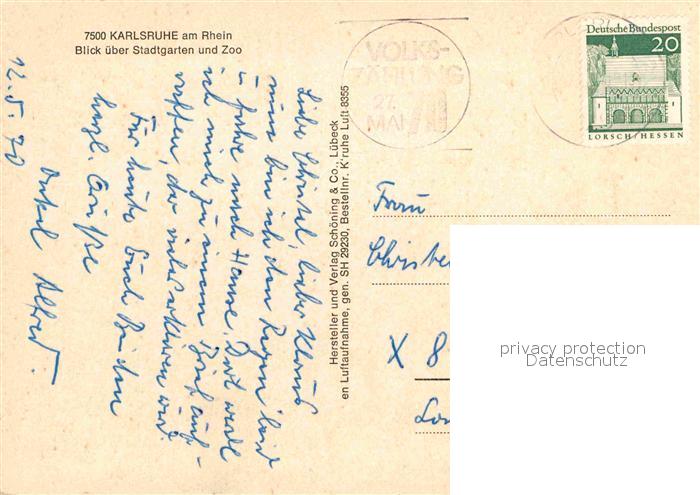 7500 KARLSRUHE am Rhein
Blick über Stadtgarten und Zoo
12.5.70
Liebe Christel, lieber Klaus
nun bin ich den Regen leid
u. fahre nach Hause. Dort werde
ich mich zu einem Brief auf-
raffen, der vieles erklären wird.
Für heute Euch Beiden
herzl. Grüße
Onkel Alfred.
Hersteller und Verlag Schöning & Co., Lübeck
en Luftaufnahme, gen. SH 29230, Bestellnr. K'ruhe Luft 8355
VOLKS-
ZÄHLUNG
27.
MAI
Deutsche Bundespost
20
LORSCH/HESSEN
Frau
Christe
X 8
privacy protection
Datenschutz